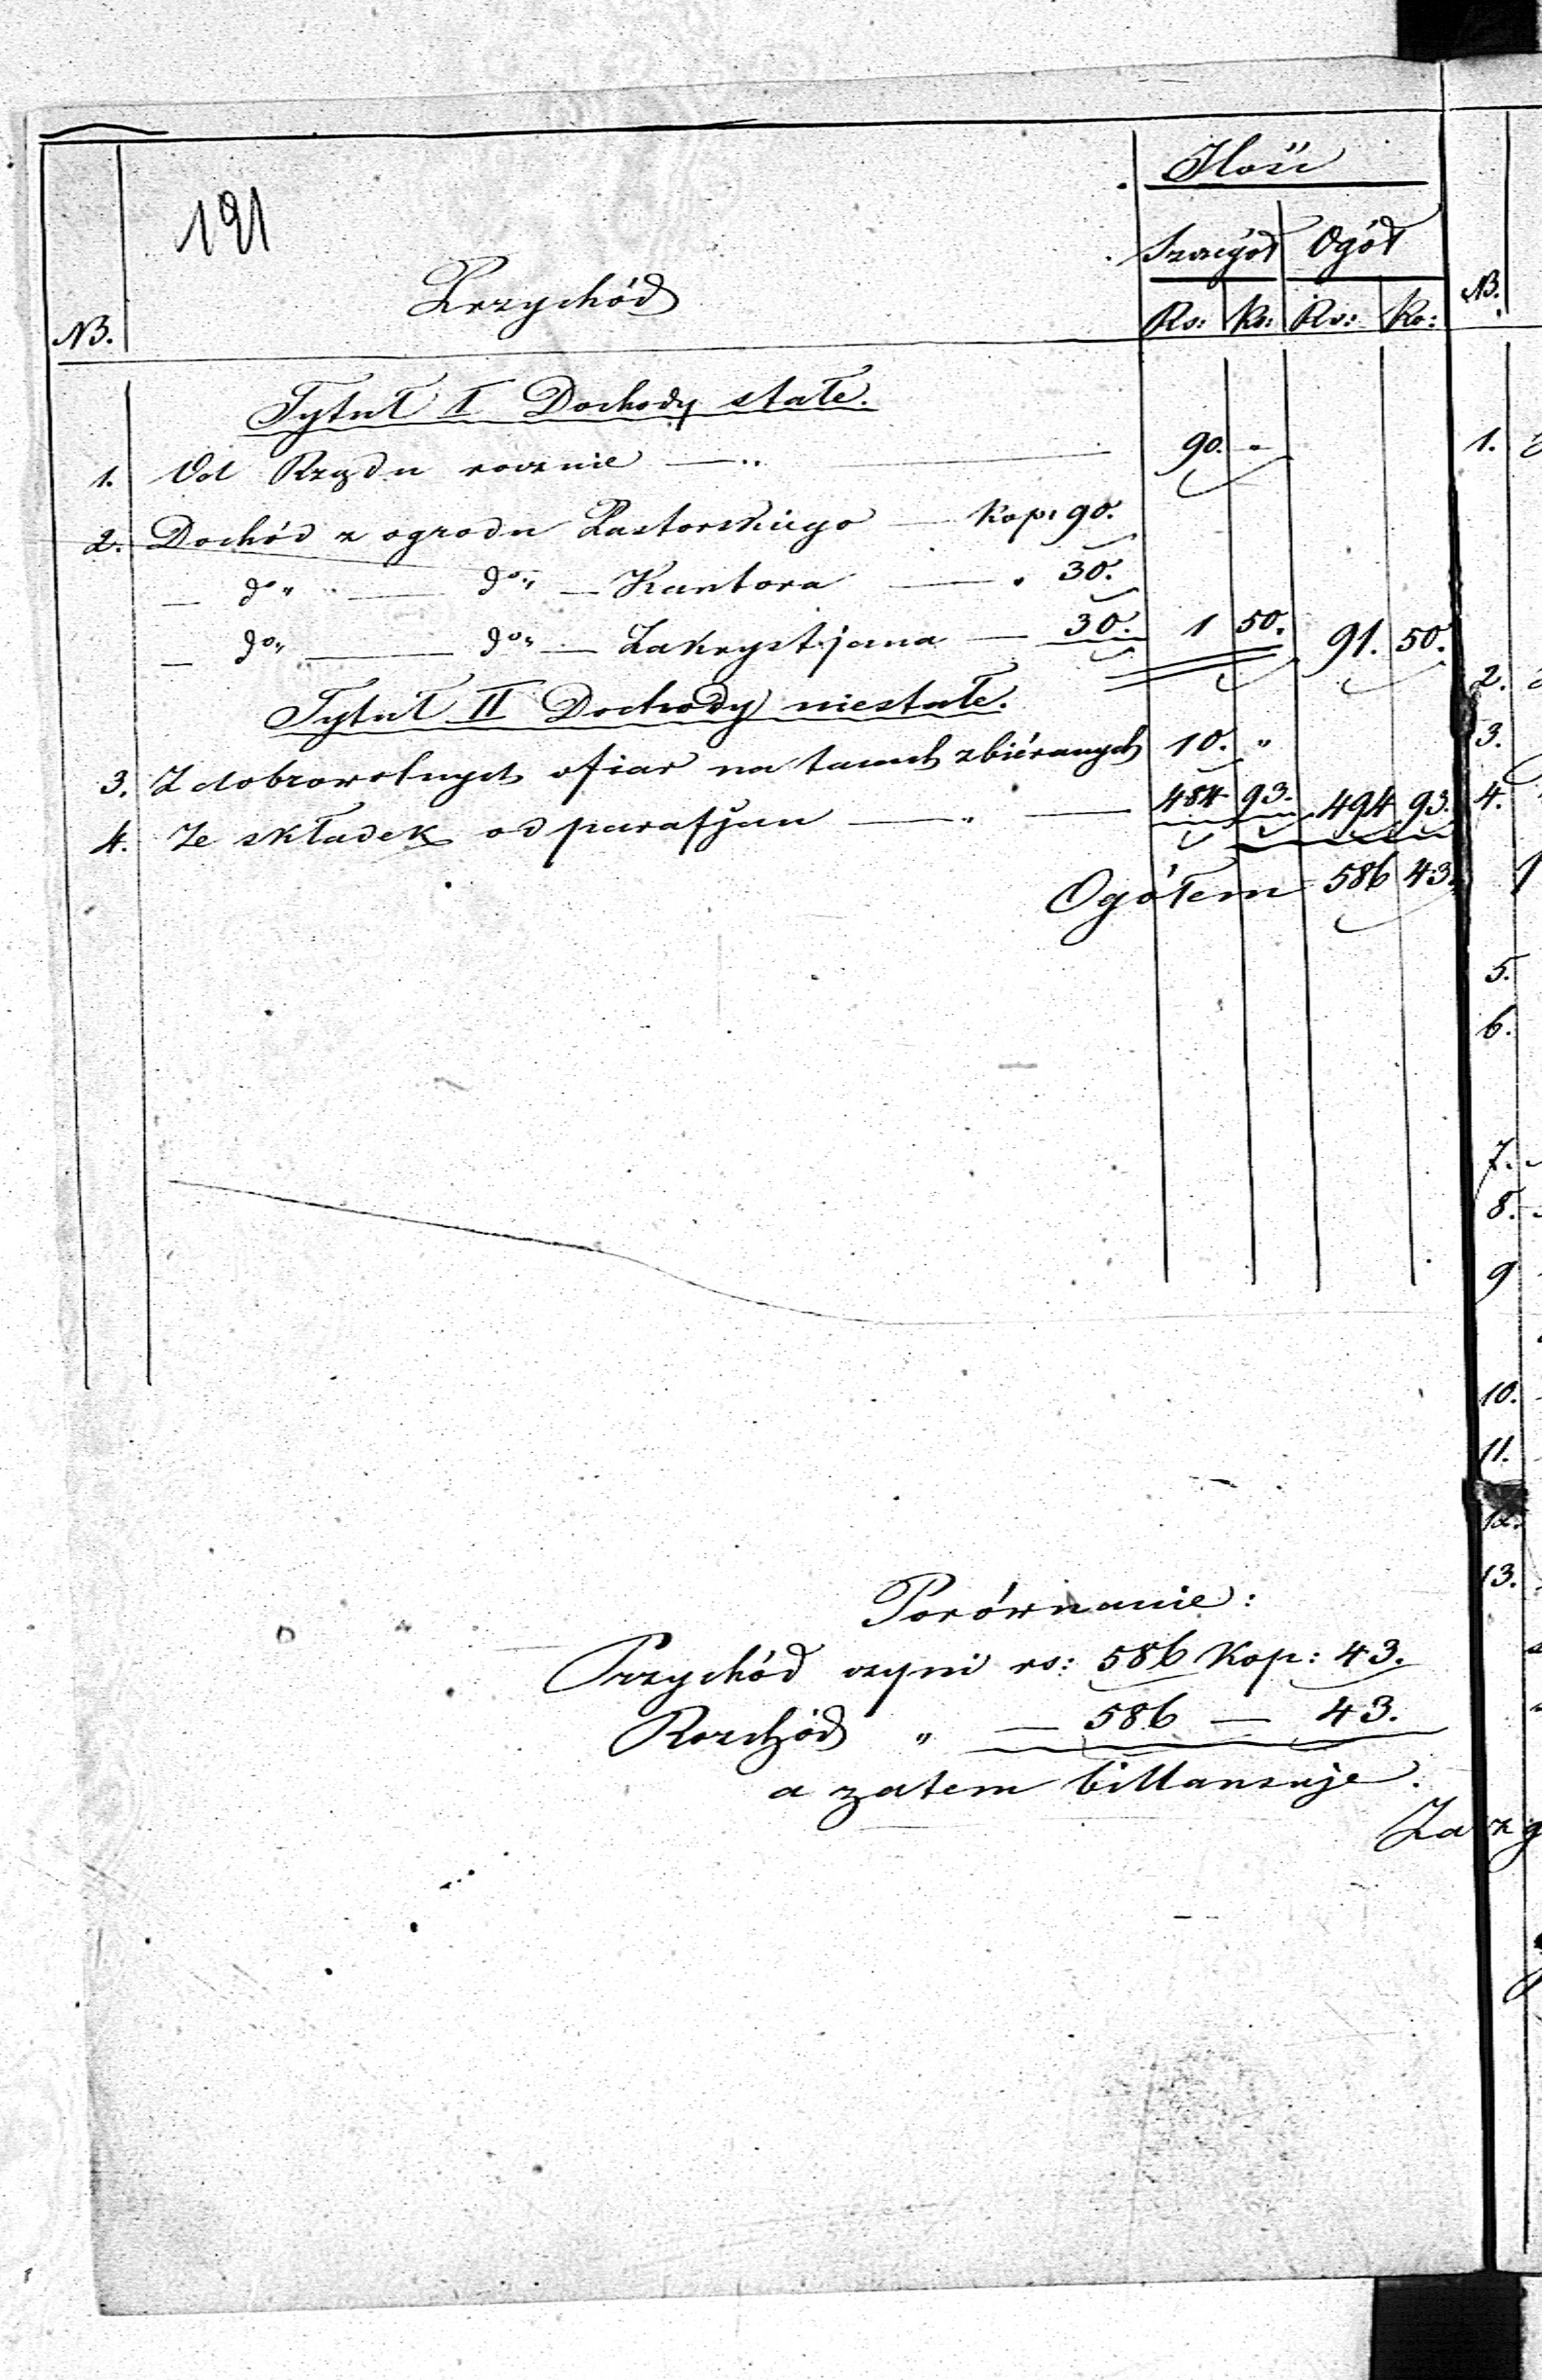 191
Ilość
Szczegół Ogół
NB. Przychód Rs: Ko: Rs: Ko: NB.
Tytuł I Dochody stałe.
1. Od Rządu rocznie — „ 90. „ 1.
2. Dochód z ogrodu Pastorskiego — Kop: 90.
— do „ — do „ — Kantora — „ 30.
— do „ — do „ — Zakrystjana — 30. 1 50. 91. 50.
2.
Tytuł II Dochody niestałe.
3. Z dobrowolnych ofiar na tacach zbiéranych 10. „ 3.
4. Ze składek od parafjan — „ — 484 93. 494 93. 4.
Ogółem 586 43.
5.
6.
7.
8.
9
10.
11.
12.
13.
Porównanie:
Przychód czyni rs: 586 Kop: 43.
Rozchód „ — 586 — 43.
a zatem billansuje.